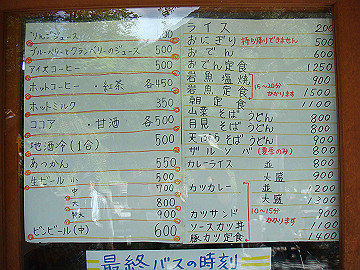 りんごジュース
ブルーベリーとクランベリーのジュース 500
アイスコーヒー 500
ホットコーヒー ・紅茶 各450
ホットミルク 350
ココア ・甘酒 各500
地酒冷(1合) 500
あつかん 550
生ビール 小 500
中 700
大 800
特大 900
ビンビール(中) 600
ライス 200
おにぎり 持ち帰りできません 500
おでん 600
おでん定食 1250
岩魚塩焼 900
岩魚定食 15〜20分かかります 1500
朝定食 1100
山菜そばうどん 800
月見そばうどん 800
天ぷらそばうどん 900
ザルソバ (夏季のみ) 800
カレーライス 並 800
大盛 900
カツカレー 並 1200
大盛 1300
カツサンド 900
ソースカツ丼 10〜15分かかります 1100
豚カツ定食 1400
最終バスの時刻